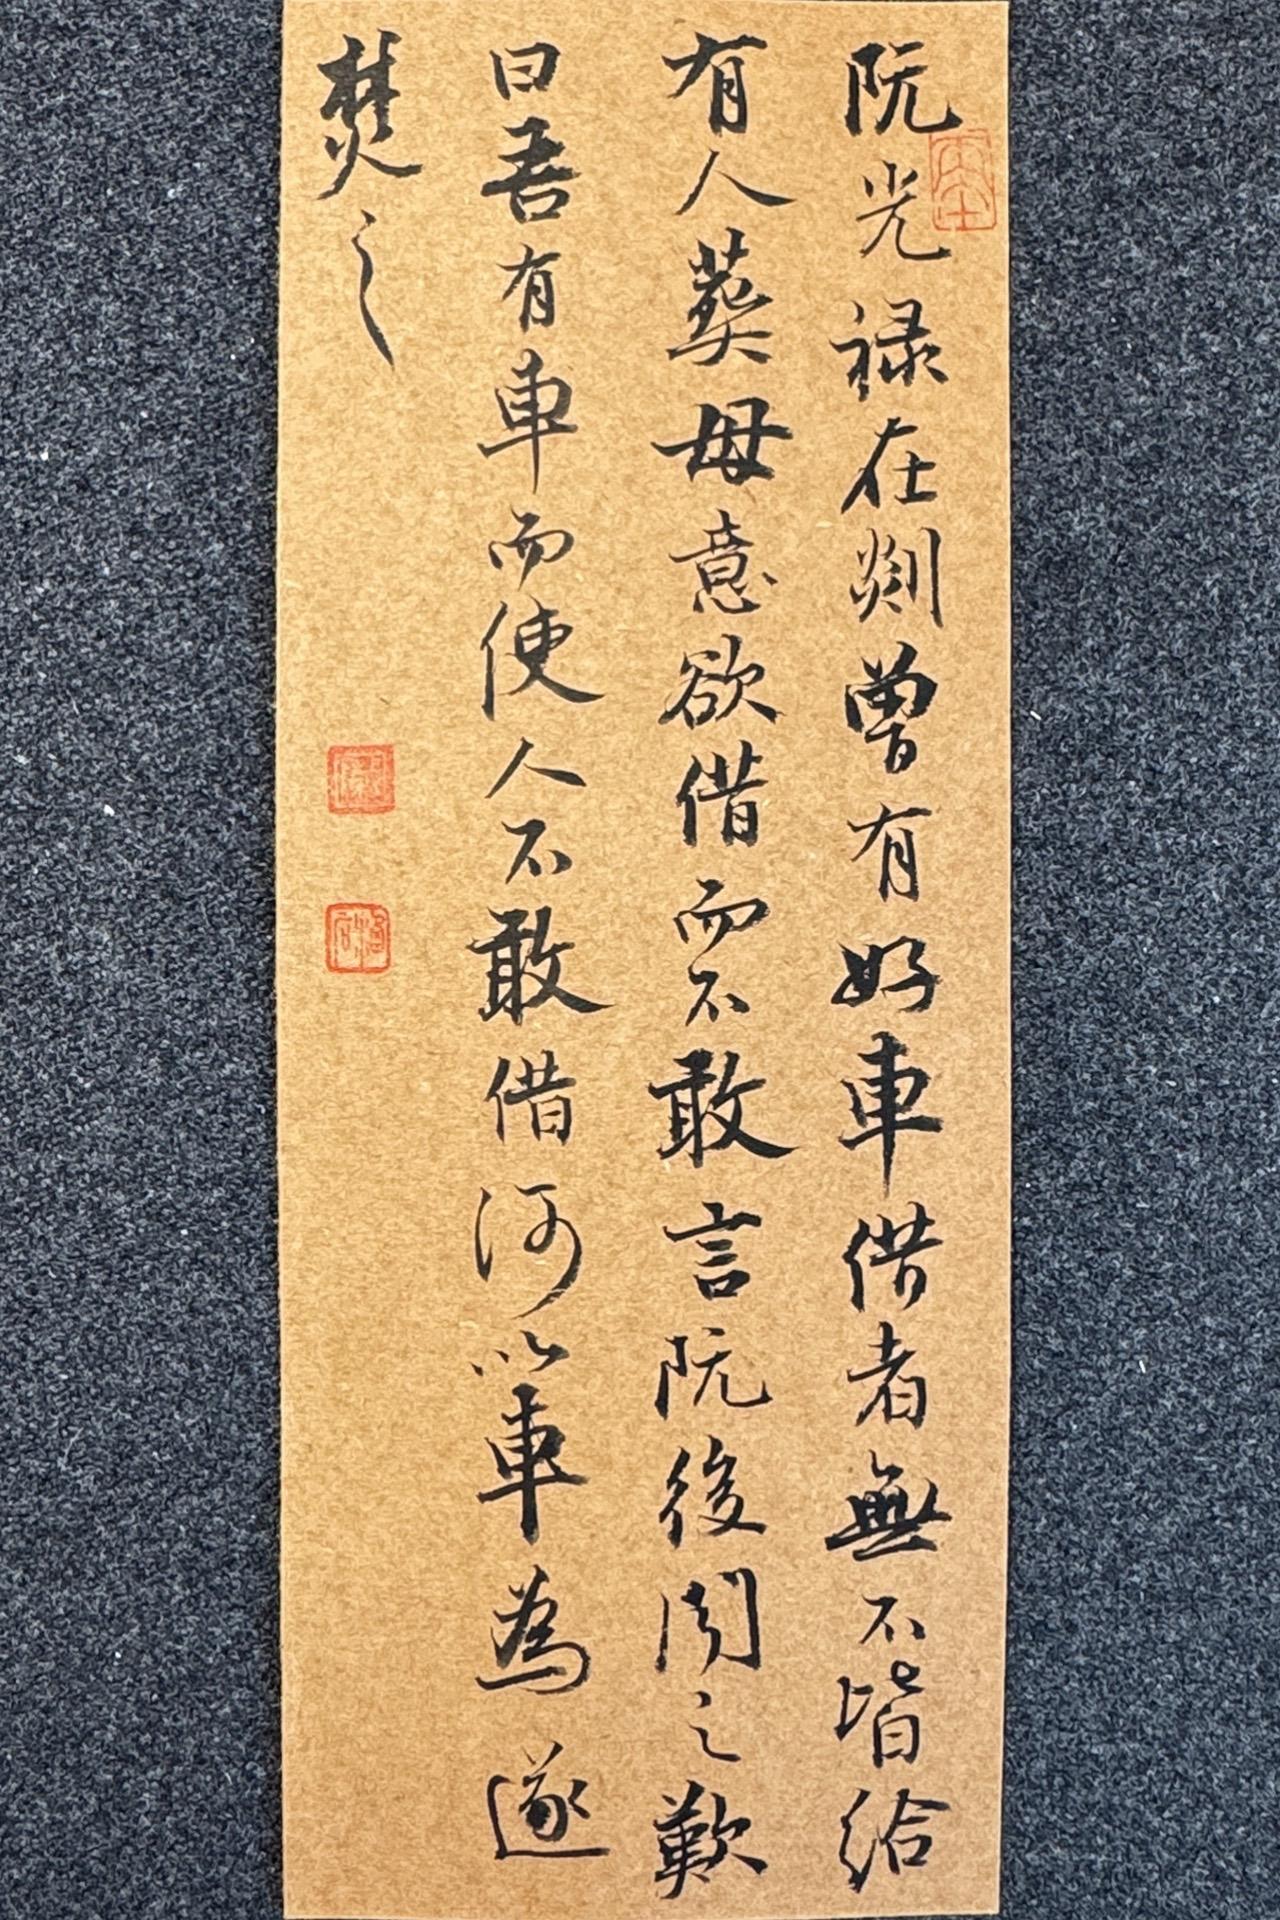 阮光禄在剡曾有好車借者無不皆給
有人葬母意欲借而不敢言阮後聞之歎
曰吾有車而使人不敢借何以車為遂
焚之